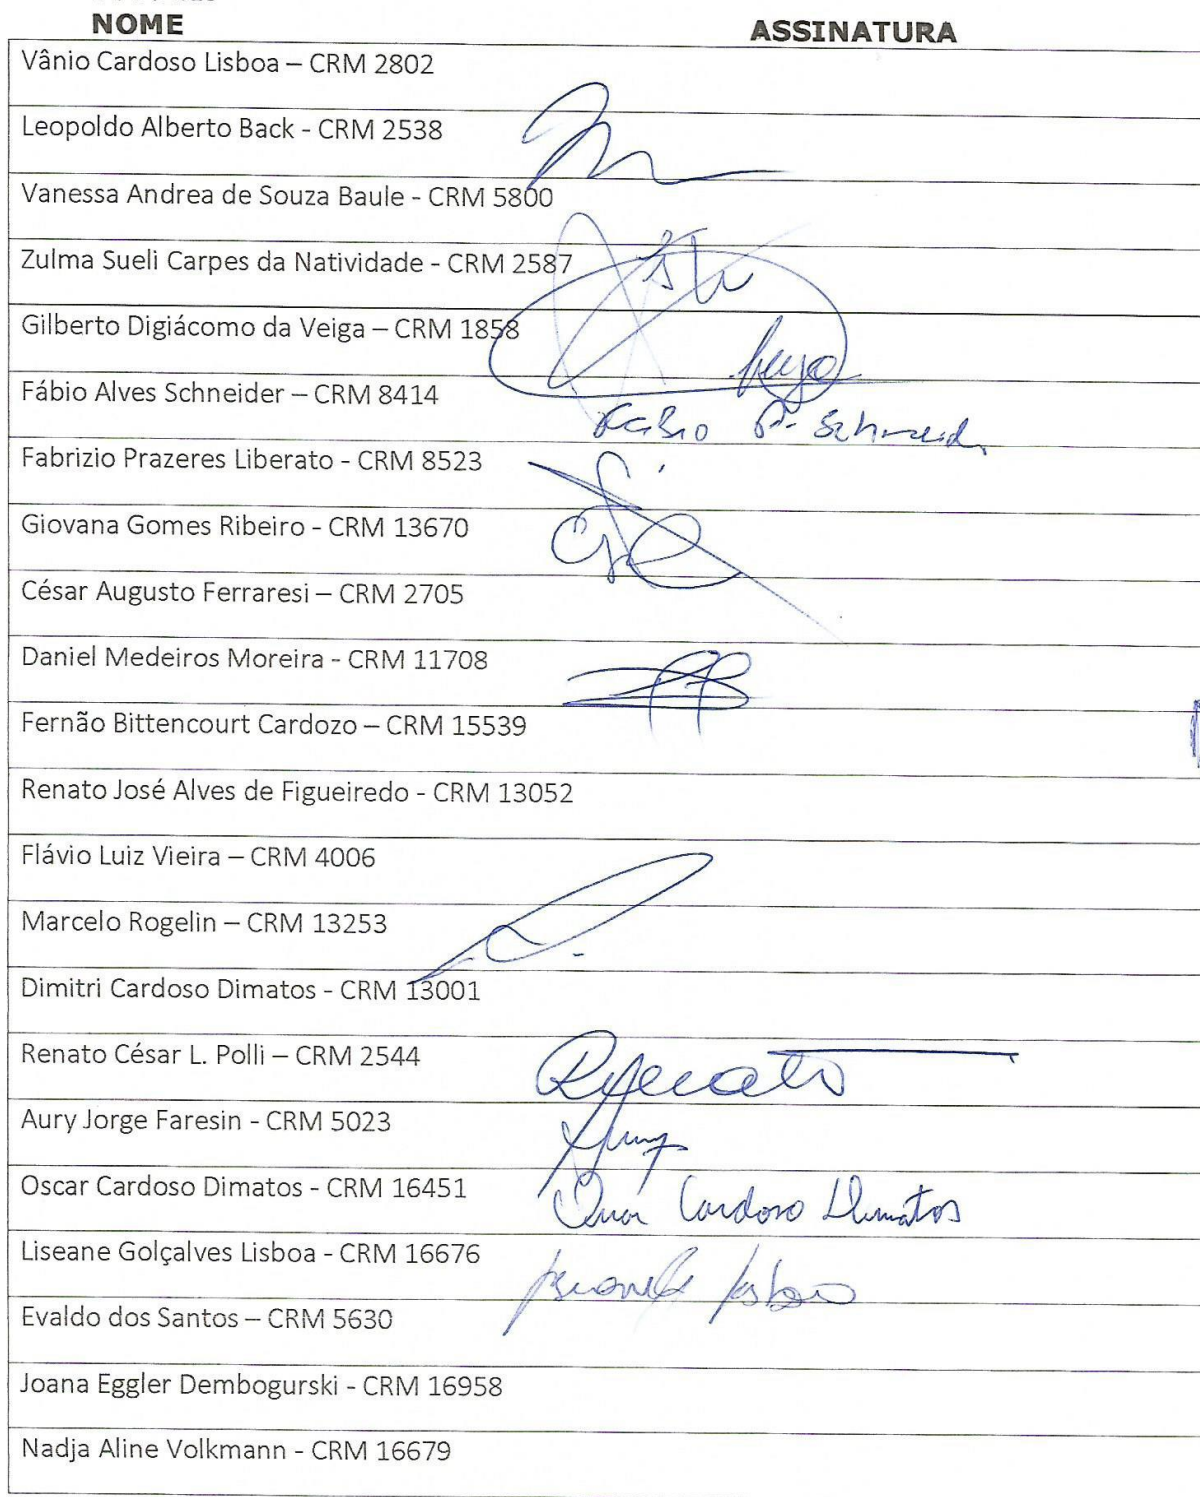 NOME ASSINATURA
Vânio Cardoso Lisboa – CRM 2802
Leopoldo Alberto Back - CRM 2538
Vanessa Andrea de Souza Baule - CRM 5800
Zulma Sueli Carpes da Natividade - CRM 2587
Gilberto Digiácomo da Veiga – CRM 1858
Fábio Alves Schneider – CRM 8414
Fabio A. Schneid
Fabrizio Prazeres Liberato - CRM 8523
Giovana Gomes Ribeiro - CRM 13670
César Augusto Ferraresi – CRM 2705
Daniel Medeiros Moreira - CRM 11708
Fernão Bittencourt Cardozo – CRM 15539
Renato José Alves de Figueiredo - CRM 13052
Flávio Luiz Vieira – CRM 4006
Marcelo Rogelin – CRM 13253
Dimitri Cardoso Dimatos - CRM 13001
Renato César L. Polli – CRM 2544
Renato
Aury Jorge Faresin - CRM 5023
Aury
Oscar Cardoso Dimatos - CRM 16451
Oscar Cardoso Dimatos
Liseane Golçalves Lisboa - CRM 16676
Lisboa
Evaldo dos Santos – CRM 5630
Joana Eggler Dembogurski - CRM 16958
Nadja Aline Volkmann - CRM 16679